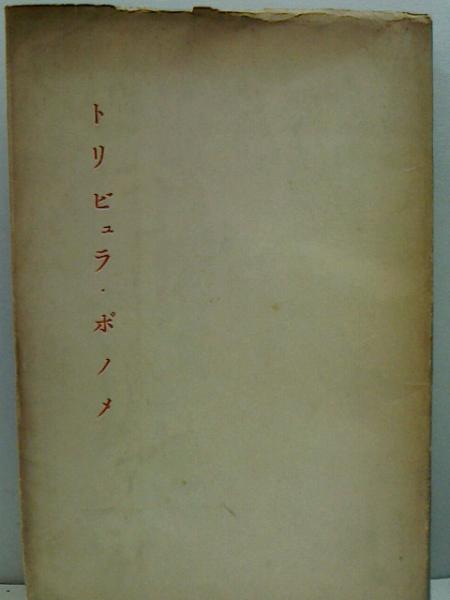 トリビュラ・ポノメ